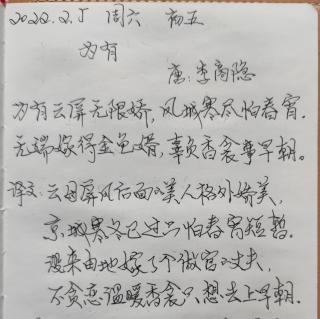 2022.2.5 周六 初五
为有
唐:李商隐
为有云屏无限娇,凤城寒尽怕春宵。
无端嫁得金龟婿,辜负香衾事早朝。
译文:云母屏风后面的美人格外娇美,
京城寒冬已过只怕春宵短暂.
没来由地嫁了个做官的丈夫,
不贪恋温暖香衾只想去上早朝.